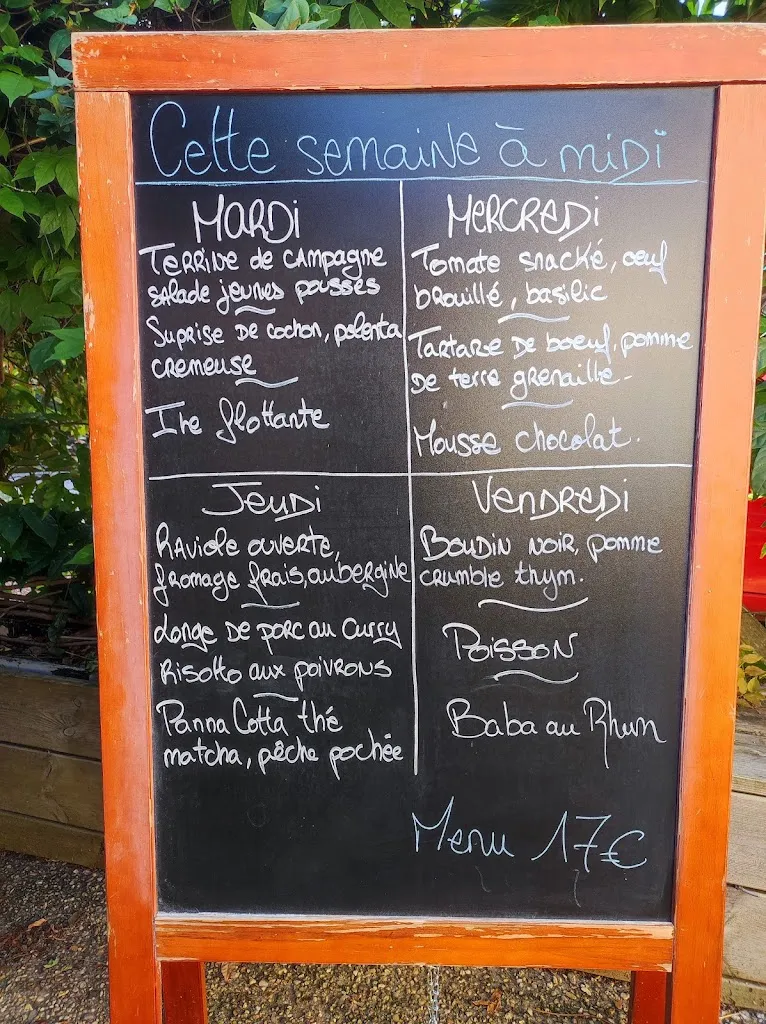 Cette semaine à midi
MARDi
TERRINE de CAMPAGNE
SALADE jeunes pousses
SUPRISE DE cochon, polenta
CREMEUSE
Ile flottante
MERCREDi
Tomate snacké, oeuf
brouillé, basilic
TARTARE DE boeuf, pomme
DE terre grenaille.
Mousse chocolat.
JEUDi
RAViole ouverte,
fromage frais, aubergine
Longe DE porc au Curry
Risotto aux poivrons
Panna Cotta thé
matcha, pêche pochée
VENDREDi
BOUDIN NOIR, pomme
crumble thym.
POISSON
Baba au Rhum
Menu 17€